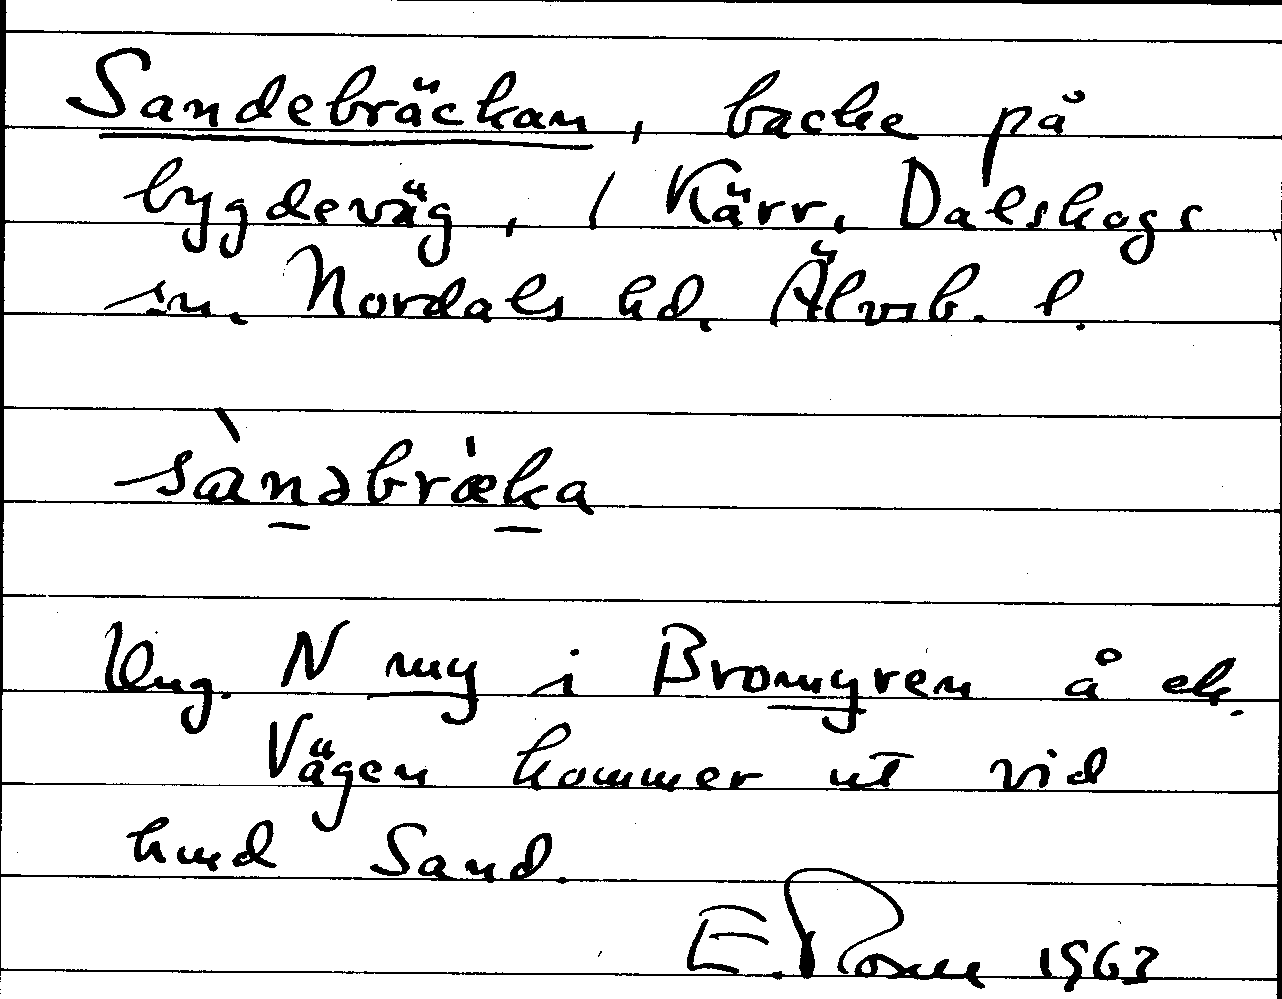 Sandebräckan, backe på
bygdeväg, / Kärr, Dalskogs
sn. Nordals hd. Älvsb. l.
sànəbræ̀ka
Ung. N my i Bromyren å ek.
Vägen kommer ut vid
hmd Sand.
E. Rosell 1963